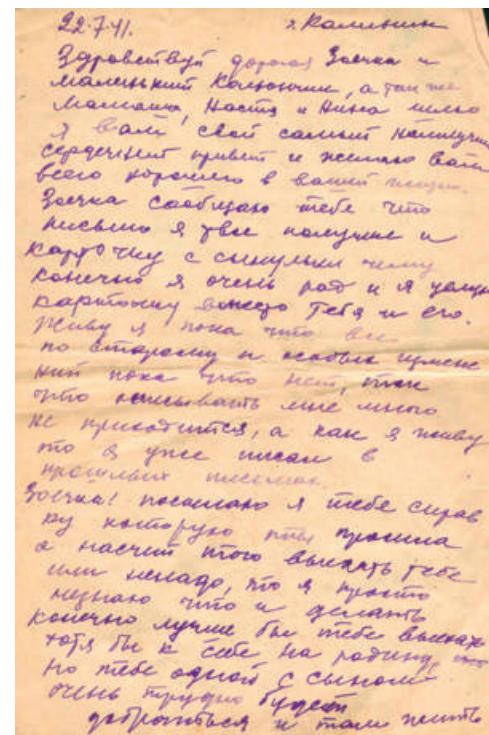 22.7.41. г. Калинин
Здравствуй дорогая Зоечка и
маленький Колюнчик, а так же
Мамаша, Настя и Нина шлю
я вам свой самый наилучш
сердечный привет и желаю вам
всего хорошего в вашей жизни.
Зоечка сообщаю тебе что
письмо я твое получил и
карточку с сынульки чему
конечно я очень рад и я целую
карточку вместо тебя и его.
Живу я пока что все
по старому и особых измене
ний пока что нет, так
что описывать мне много
не приходится, а как я живу
то я уже писал в
прошлых письмах.
Зоечка! посылаю я тебе справ
ку которую ты просила
а насчет того выехать тебе
или ненадо, то я просто
незнаю что и делать
конечно лучше бы тебе выехать
хотя бы к себе на родину,
но тебе одной с сыном
очень трудно будет
добраться и там жить